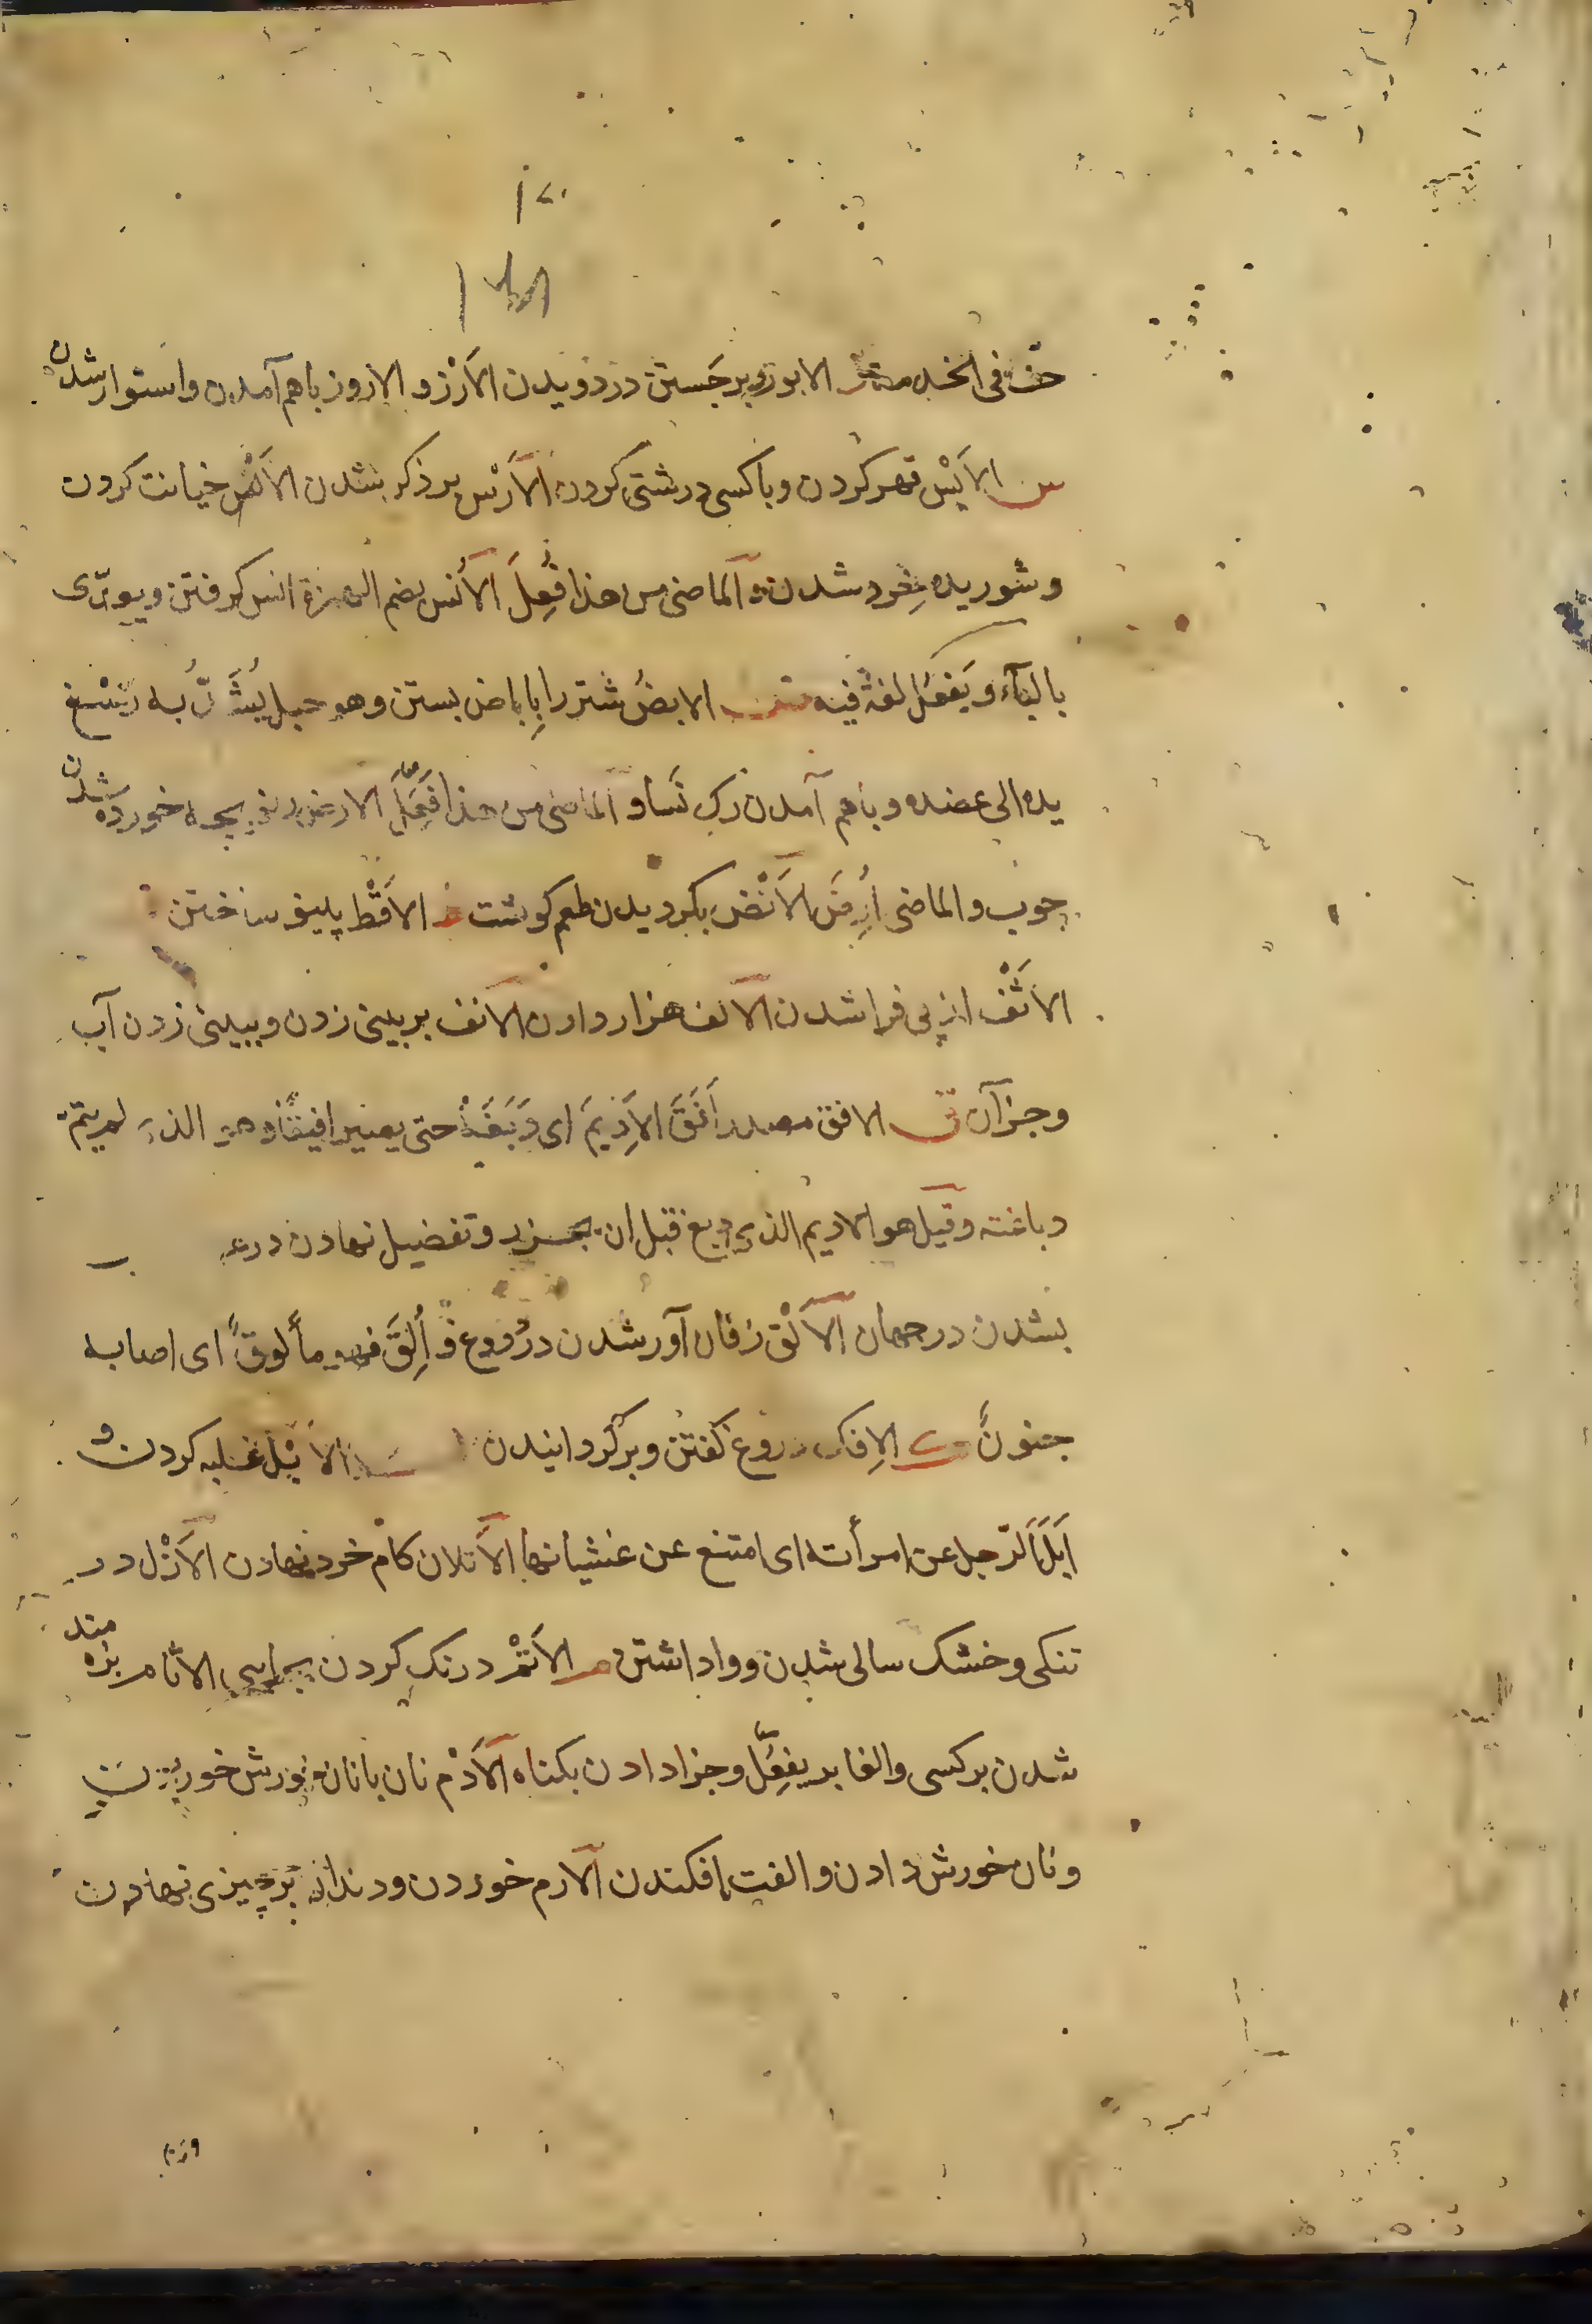 الابوز بر جستن در دویدن الاَرْز و الاروز باهم آمدن و استوار شدن
س الاَبْس قهر کردن و با کسی درشتی کردن الاَرْس برذکر بشدن الاَلْس خیانت کردن
و شوریده خرد شدن و الماضی من هذا فُعِلَ الاُنس بضم الهمزة انس کرفتن و یعدّی
بالبآء و یَفعَل لغة فیه الابضُ شتر را بِاباض بستن و هو حبل یُشَدّ به رُسْغ
یده الی عضده و باهم آمدن رک نَسا و الماضی من هذا فَعِلَ الارض خورده شدن
چوب و الماضی اُرِضَ الاَنْض بکردیدن طعم کوشت ط الاَقْط پلینو ساختن
الاَثْف از پی فرا شدن الالف هزار دادن الانف بر بینی زدن و ببینی زدن آب
و جز آن ق الافق مصدر اَفَقَ الاَدِیمَ ای دَبَغَهُ حتی یصیر افیقًا و هو الذی لم یتم
دباغته و قیل هو الادیم الذی دبغ قبل ان یخرز و تفضیل نهادن در
بشدن در جهان الاَلْق زفان آور شدن در دروغ و اُلِقَ فهو مألوقٌ ای اصابه
جنونٌ ک الاِفک دروغ کفتن و برکردانیدن الاَبْل غلبه کردن و
اَبَلَ الرّجل عن امرأته ای امتنع عن غشیانها الاَتلان کام خرد نهادن الاَزْل در
تنکی و خشک سالی شدن و واداشتن م الاَتْم درنک کردن بجایی الاثام بزه مند
شدن بر کسی و الغابر یفعِل و جزا دادن بکناه الاَدْم نان با نان خورش خوردن
و نان خورش دادن و الفت افکندن الارم خوردن و دندان بر چیزی نهادن